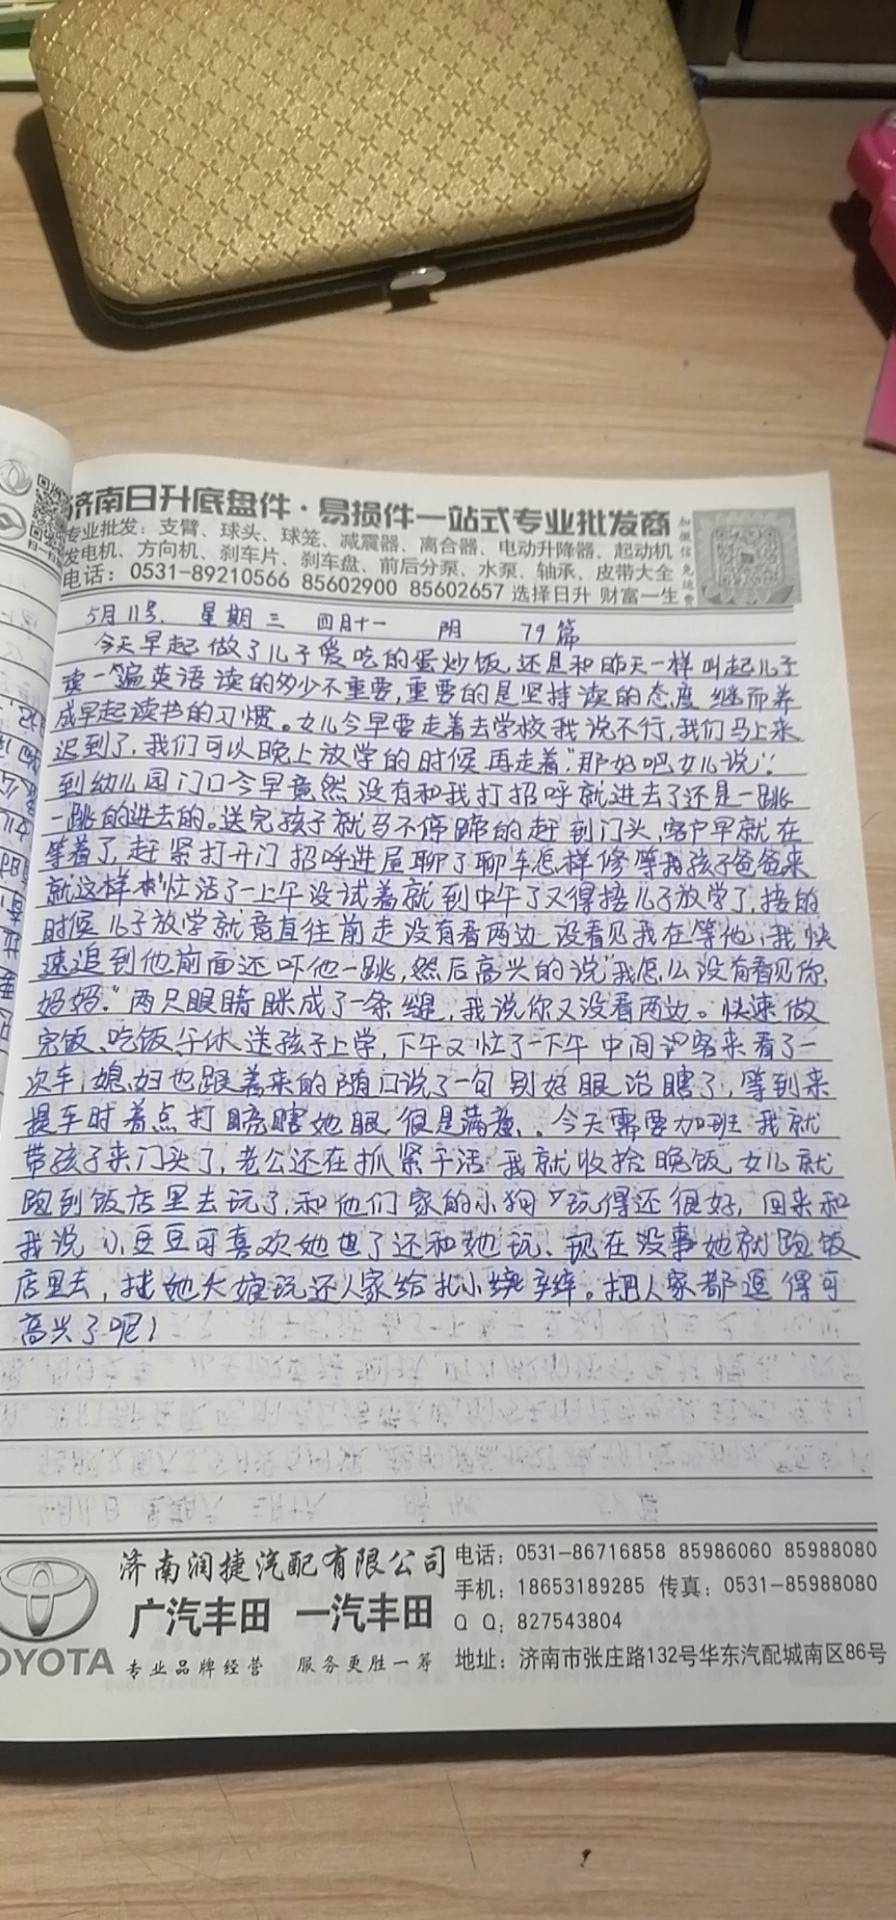 济南日升底盘件·易损件一站式专业批发商
专业批发：支臂、球头、球笼、减震器、离合器、电动升降器、起动机
发电机、方向机、刹车片、刹车盘、前后分泵、水泵、轴承、皮带大全
电话：0531-89210566 85602900 85602657 选择日升 财富一生
加微信免运费
5月11号. 星期三 四月十一 阴 79篇
今天早起做了儿子爱吃的蛋炒饭,还是和昨天一样叫起儿子
读一遍英语读的多少不重要,重要的是坚持读的态度继而养
成早起读书的习惯。女儿今早要走着去学校我说不行,我们马上来
迟到了,我们可以晚上放学的时候再走着,"那好吧女儿说":
到幼儿园门口今早竟然没有和我打招呼就进去了还是一跳
一跳的进去的。送完孩子就马不停蹄的赶到门头,客户早就在
等着了,赶紧打开门招呼进屋聊了聊车怎样修等我孩子爸爸来
就这样忙活了一上午没试着就到中午了又得接儿子放学了,接的
时候儿子放学就竟直往前走没有看两边没看见我在等他,我快
速追到他前面还吓他一跳,然后高兴的说"我怎么没有看见你,
妈妈."两只眼睛眯成了一条缝,我说你又没看两边。快速做
完饭、吃饭午休送孩子上学,下午又忙了一下午中间客来看了一
次车,媳妇也跟着来的随口说了一句别好眼治瞎了,等到来
提车时着点打瞎她眼,很是满意.。今天需要加班我就
带孩子来门头了,老公还在抓紧干活我就收拾晚饭,女儿就
跑到饭店里去玩了,和他们家的小狗玩得还很好,回来和
我说小豆豆可喜欢她也了还和她玩、现在没事她就跑饭
店里去,找她大娘玩还人家给扎小辫。把人家都逗得可
高兴了呢!
TOYOTA
济南润捷汽配有限公司
广汽丰田 一汽丰田
专业品牌经营 服务更胜一筹
电话：0531-86716858 85986060 85988080
手机：18653189285 传真：0531-85988080
Q Q：827543804
地址：济南市张庄路132号华东汽配城南区86号